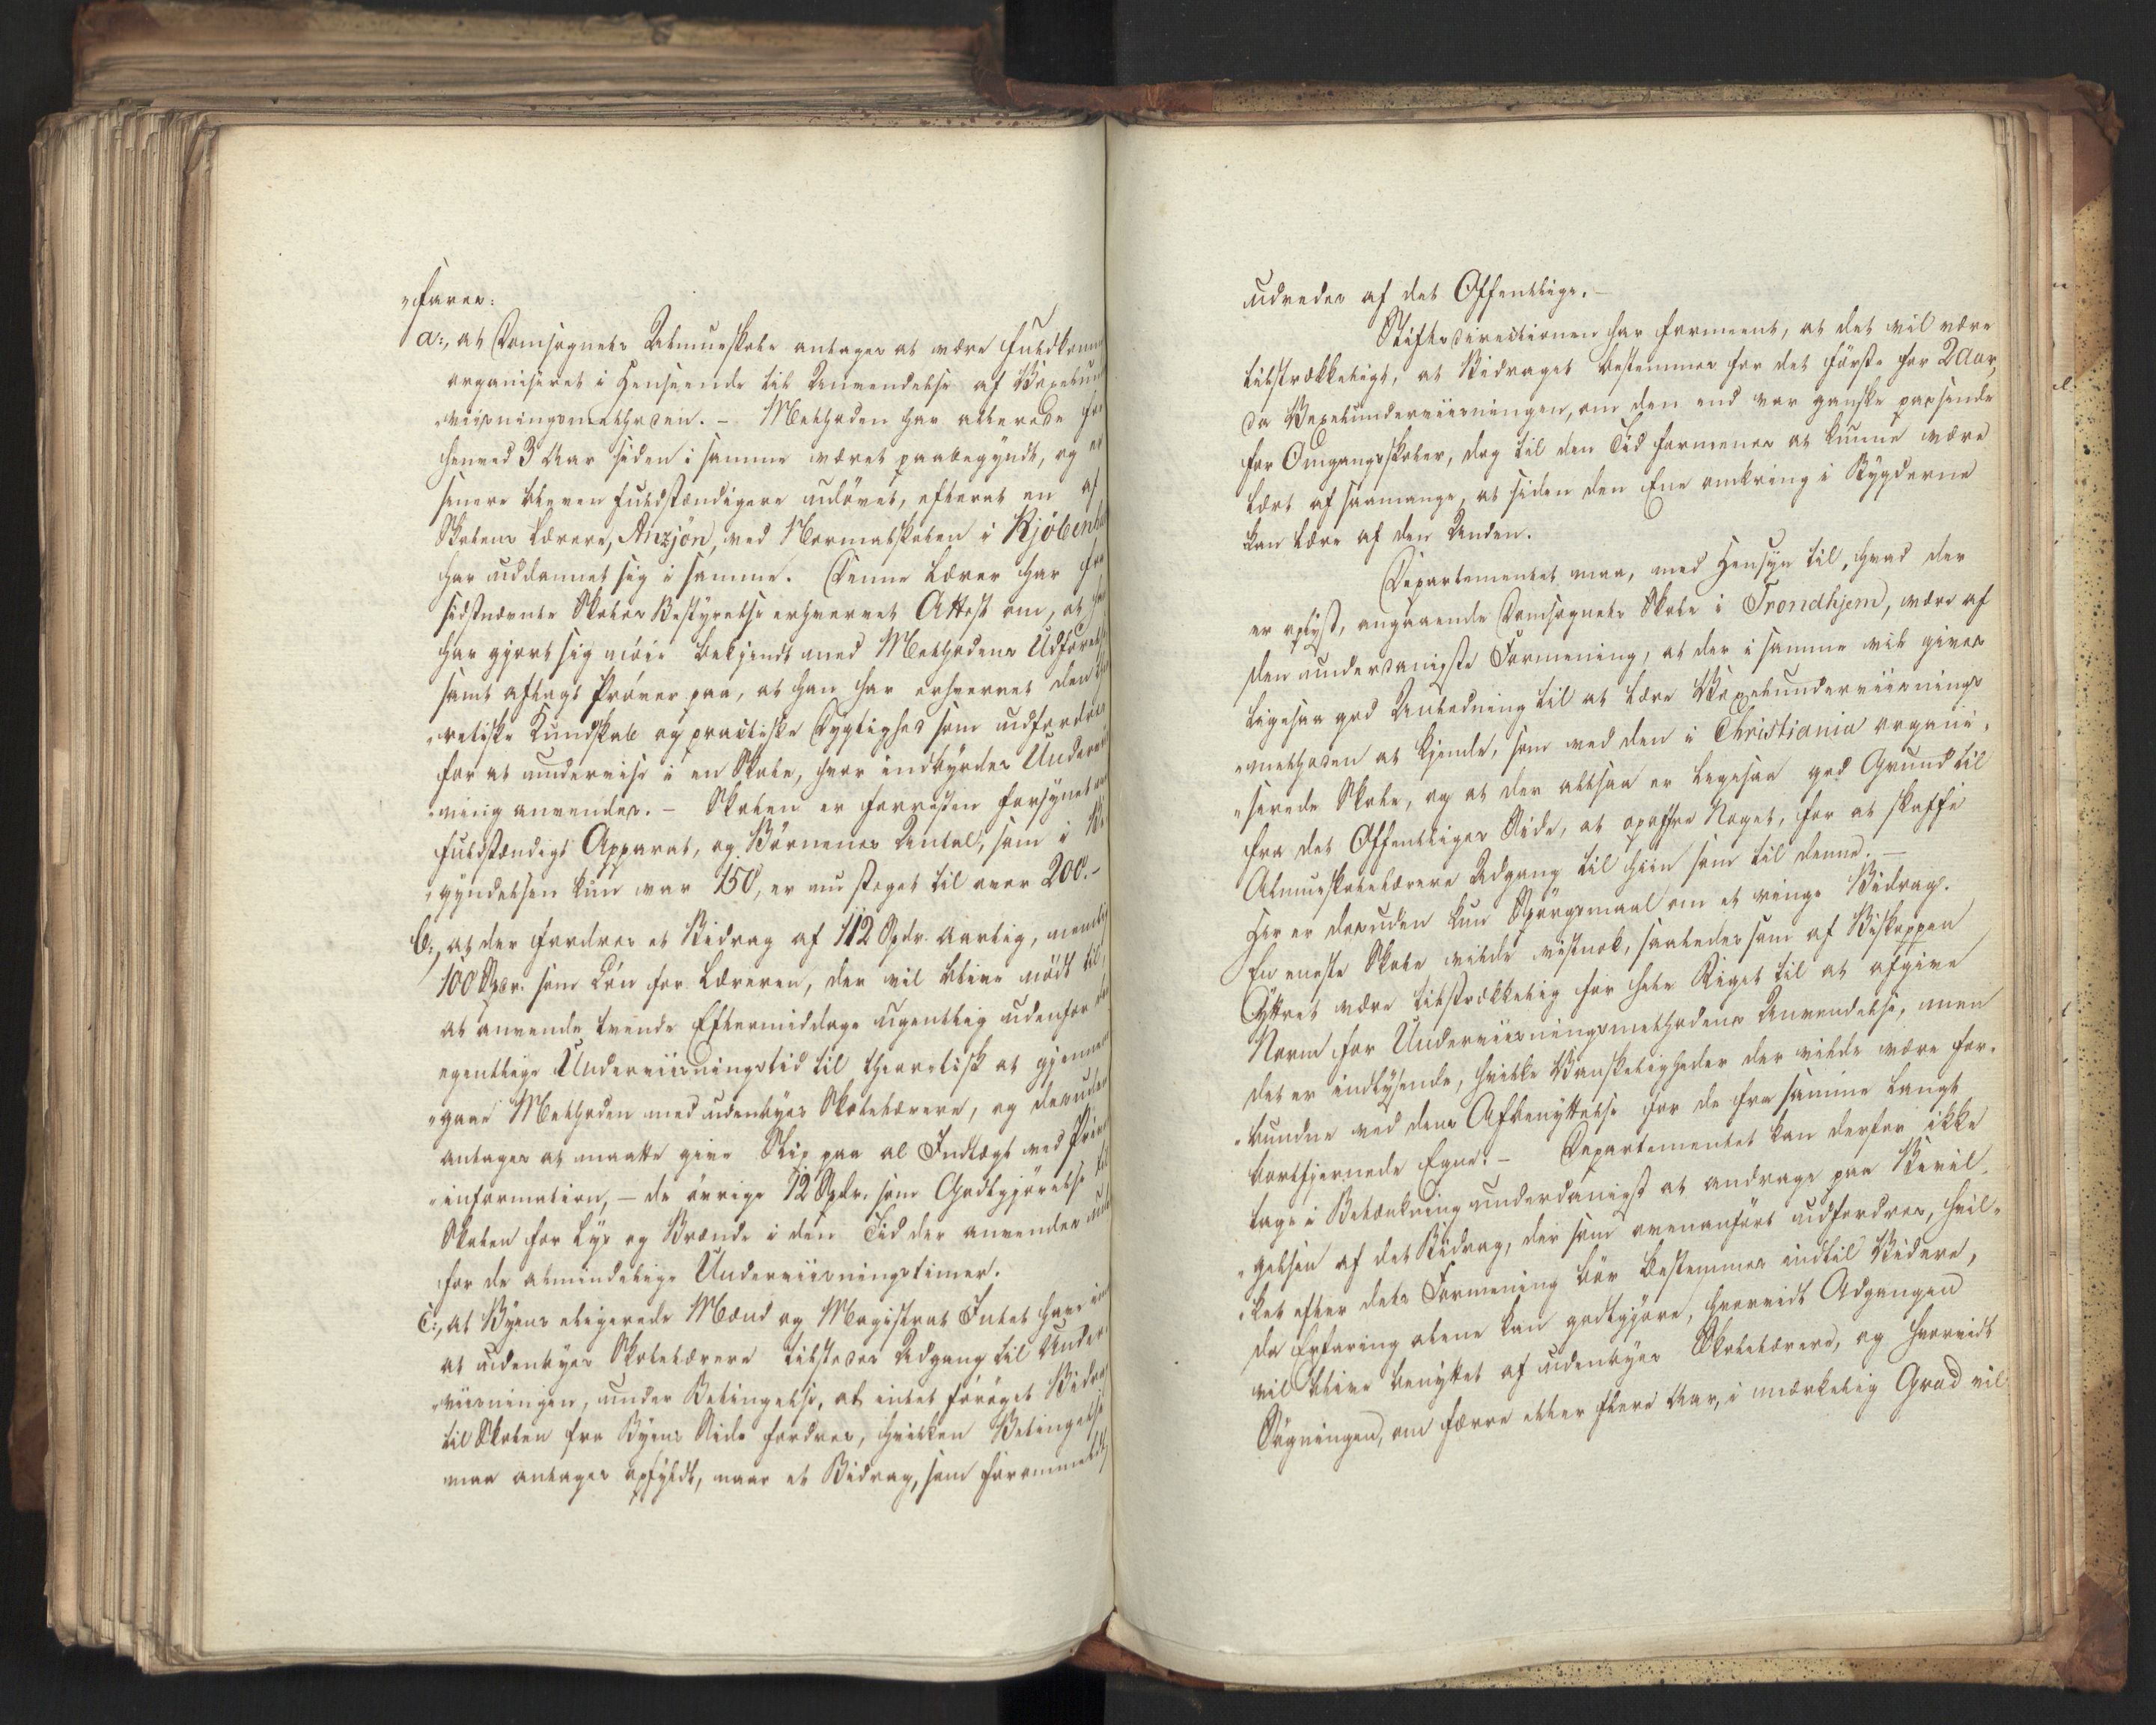 "fares:
a:, at Domsognets Almueskole antages at være fuldkomm
organiseret i Henseende til Anvendelse af Vexelund
"viisningsmethoden. - Methoden har allerede for
henved 3 Aar siden i samme været paabegyndt, og er
senere bleven fuldstændigere udövet, efterat en af
Skolens Lærere, Anzjön, ved Normalskolen i Kjöbenh
har uddannet sig i samme. Denne Lærer har fra
sidstnævnte Skoles Bestyrelse erhvervet Attest om, at han
har gjort sig nöie bekjendt med Methodens Udförelse
samt aflagt Pröver paa, at han har erhvervet den theo
"retiske Kundskab og practiske Dygtighed som udfordres
for at undervise i en Skole, hvor indbyrdes Underviis
"ning anvendes. - Skolen er forresten forsynet med
fuldstændigt Apparat, og Börnenes Antal, som i Be
"gyndelsen kun var 150, er nu steget til over 200. -
b:, at der fordres et Bidrag af 112 Spdr. aarlig, nemlig
100 Spdr. som Lön for Læreren, der vil blive nödt til,
at anvende tvende Eftermiddage ugentlig udenfor den
egentlige Underviisningstid til theoretisk at gjennem
"gaae Methoden med udenbyes Skolelærere, og desuden
antages at maatte give Slip paa al Indtægt ved Privat
"information, - de övrige 12 Spdr. som Godtgjörelse til
Skolen for Lys og Brænde i den Tid der anvendes uden
for de almindelige Underviisningstimer.
c:, at Byens eligerede Mænd og Magistrat Intet have imod
at udenbyes Skolelærere tilstedes Adgang til Under
"viisningen, under Betingelse, at intet foröget Bidrag
til Skolen fra Byens Side fordres, hvilken Betingelse
maa antages opfyldt, naar et Bidrag, som forommeldt,
udredes af det Offentlige. -
Stiftsdirectionen har formeent, at det vil være
tilstrækkeligt, at Bidraget bestemmes for det förste for 2 Aar,
da Vexelunderviisningen, om den end var ganske passende
for Omgangsskoler, dog til den Tid formenes at kunne være
lært af saamange, at siden den Ene omkring i Bygderne
kan lære af den Anden.
Departementet maa, med Hensyn til, hvad der
er oplyst, angaaende Domsognets Skole i Trondhjem, være af
den underdanigste Formening, at der i samme vil gives
ligesaa god Anledning til at lære Vexelunderviisnings
"methoden at kjende, som ved den i Christiania organi"
"serede Skole, og at der altsaa er ligesaa god Grund til
fra det Offentliges Side, at opoffre Noget, for at skaffe
Almueskolelærere Adgang til hiin som til denne. -
Her er desuden kun Spörgsmaal om et ringe Bidrag.
En eneste Skole vilde vistnok, saaledes som af Biskoppen
yttret være tilstrækkelig for hele Riget til at afgive
Norm for Underviisningsmethodens Anvendelse, men
det er indlysende, hvilke Vanskeligheder der vilde være for"
"bundne ved dens Afbenyttelse for de fra samme langt
bortfjernede Egne. - Departementet kan derfor ikke
tage i Betænkning underdanigst at andrage paa Bevil"
"gelsen af det Bidrag, der som ovenanfört udfordres, hvil"
"ket efter dets Formening bör bestemmes indtil Videre,
da Erfaring alene kan godtgjöre, hvorvidt Adgangen
vil blive benyttet af udenbyes Skolelærere, og hvorvidt
Sögningen, om færre eller flere Aar, i mærkelig Grad vil